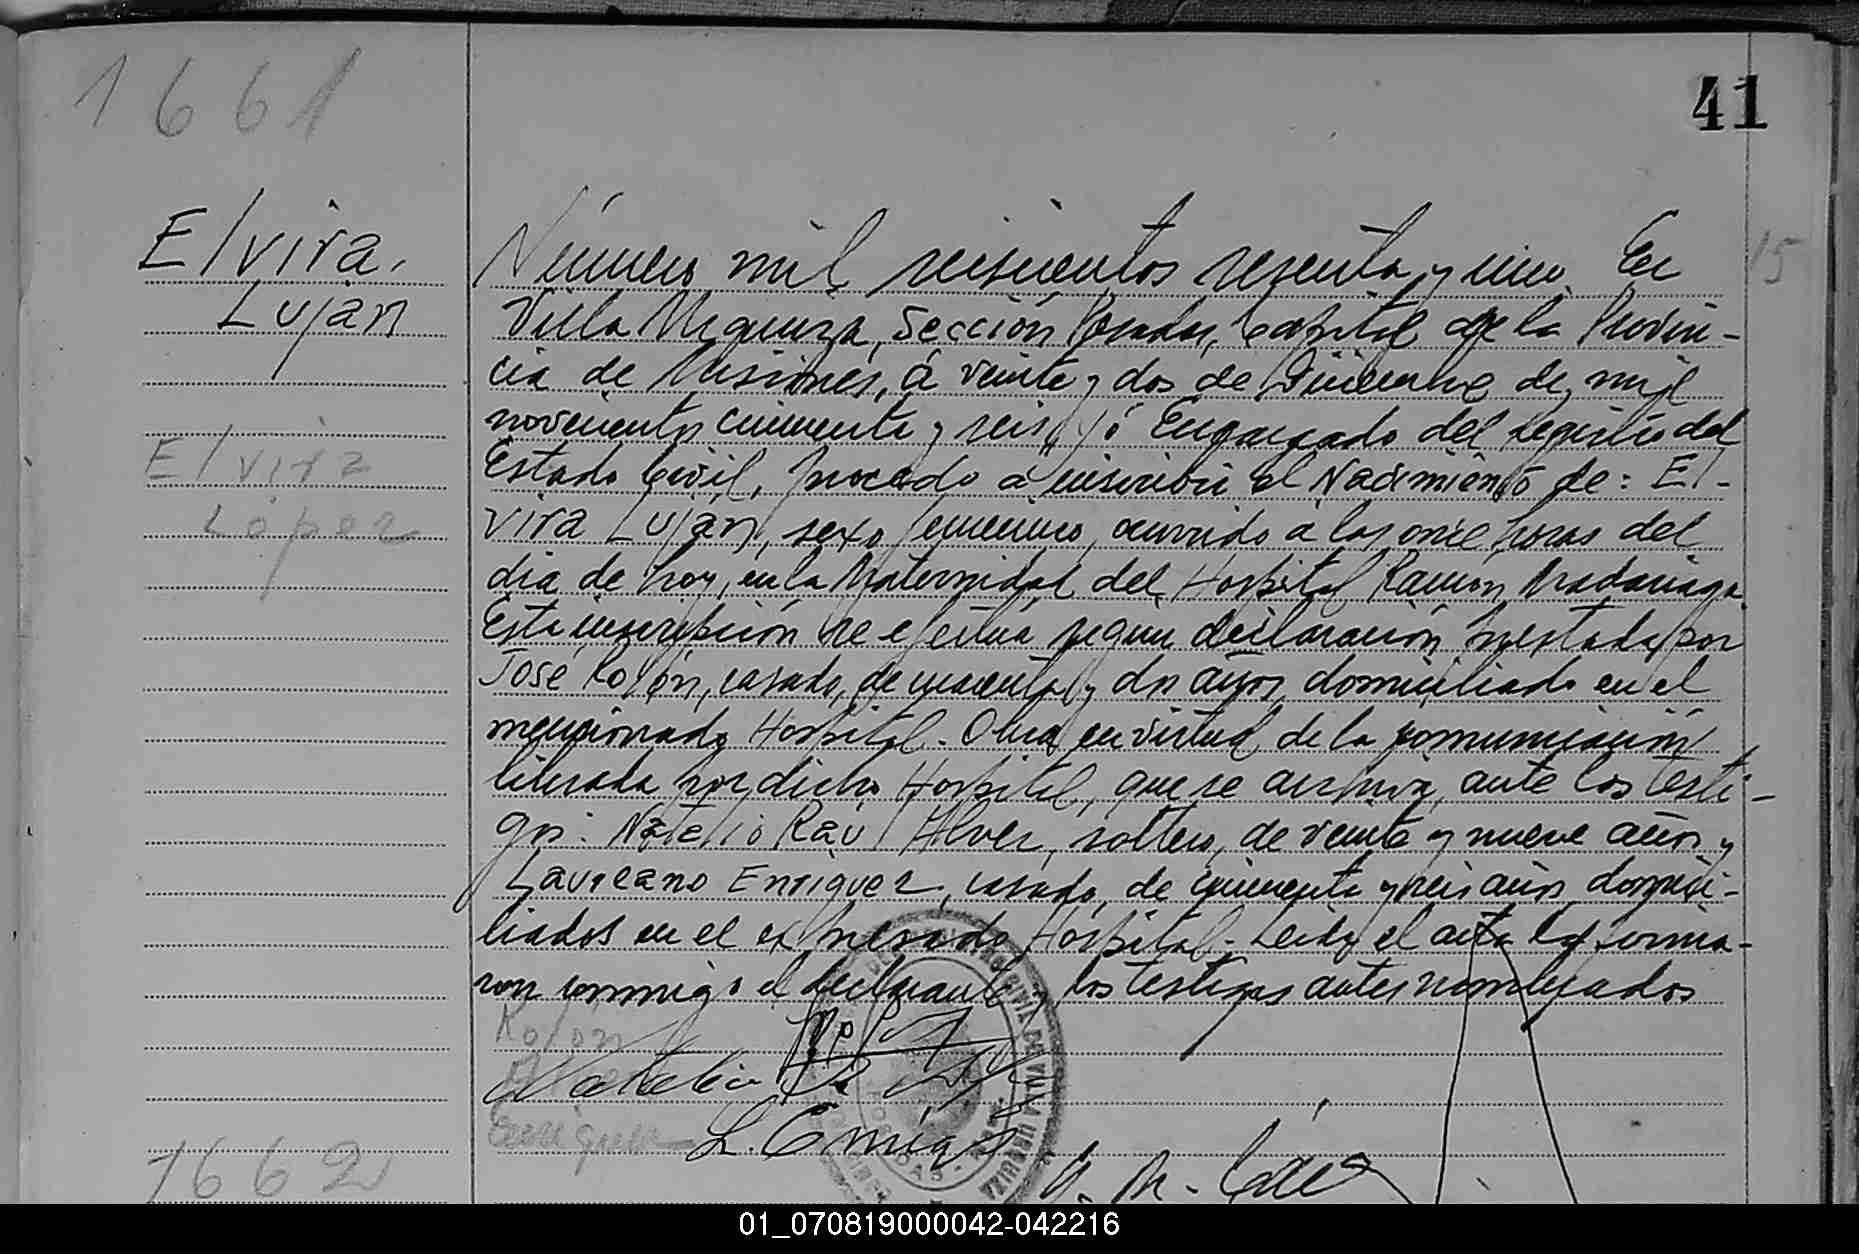 1661
41
Elvira
Luján
15
Número mil seiscientos sesenta y uno. En
Villa Urquiza, Sección Posadas, Capital de la Provin-
cia de Misiones, á veinte y dos de Diciembre de mil
novecientos cincuenta y seis, yó Encargado del Registro del
Estado Civil, procedo a inscribir el Nacimiento de: El-
vira Luján, sexo femenino, ocurrido a las once horas del
dia de hoy, en la Maternidad del Hospital Ramón Madariaga.
Esta inscripción se efectua segun declaración prestada por
José Rolón, casado, de cuarenta y dos años, domiciliado en el
mencionado Hospital. Obra en virtud de la comunicación
librada por dicho Hospital, que se archiva, ante los testi-
gos: Natalio Raúl Alvez, soltero, de veinte y nueve años y
Laureano Enriquez, casado, de cincuenta y seis años domici-
liados en el expresado Hospital. Leida el acta la firma-
ron conmigo el declarante y los testigos antes nombrados
Elvira
López
Rolón
Natalio R.
Enriquez
L. Enriq
1662
REGISTRO CIVIL DE VILLA URQUIZA
POSADAS
01_070819000042-042216